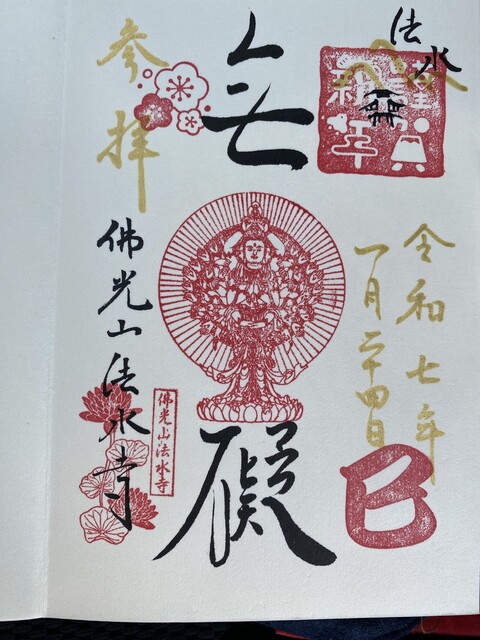 法水
令和七年
一月二十四日
巳
無
礙
参拝
佛光山法水寺
佛光山法水寺